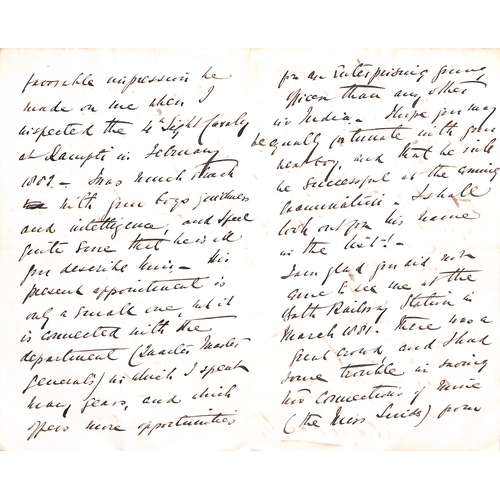 favorable impression he
made on me when I
inspected the 4 Light Cavalry
at Kampti in February
1881. – I was much struck
with your boys quickness
and intelligence, and feel
quite sure that he is all
you describe him – His
present appointment is
only a small one, but it
is connected with the
department (Quarter Master
Generals) in which I spent
many years, and which
offers more opportunities
for an enterprising young
officer than any other
in India – I hope you may
be equally fortunate with your
next boy, and that he will
be successful at the coming
examination – I shall
look out for his name
in the list –
I am glad you did not
come to see me at the
Bath Railway Station in
March 1881. There was a
great crowd and I had
some trouble in saving
two connections of mine
(the Miss) from